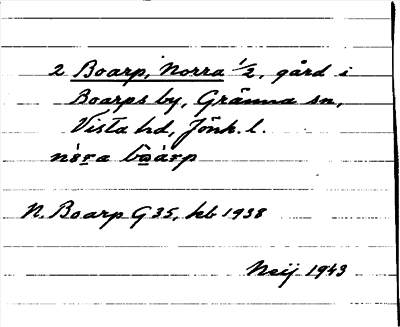 2 Boarp, Norra 1/2, gård i
Boarps by, Gränna sn,
Vista hd, Jönk. l.
nòra boàrp
N. Boarp G 35, kb 1938
Neij 1943